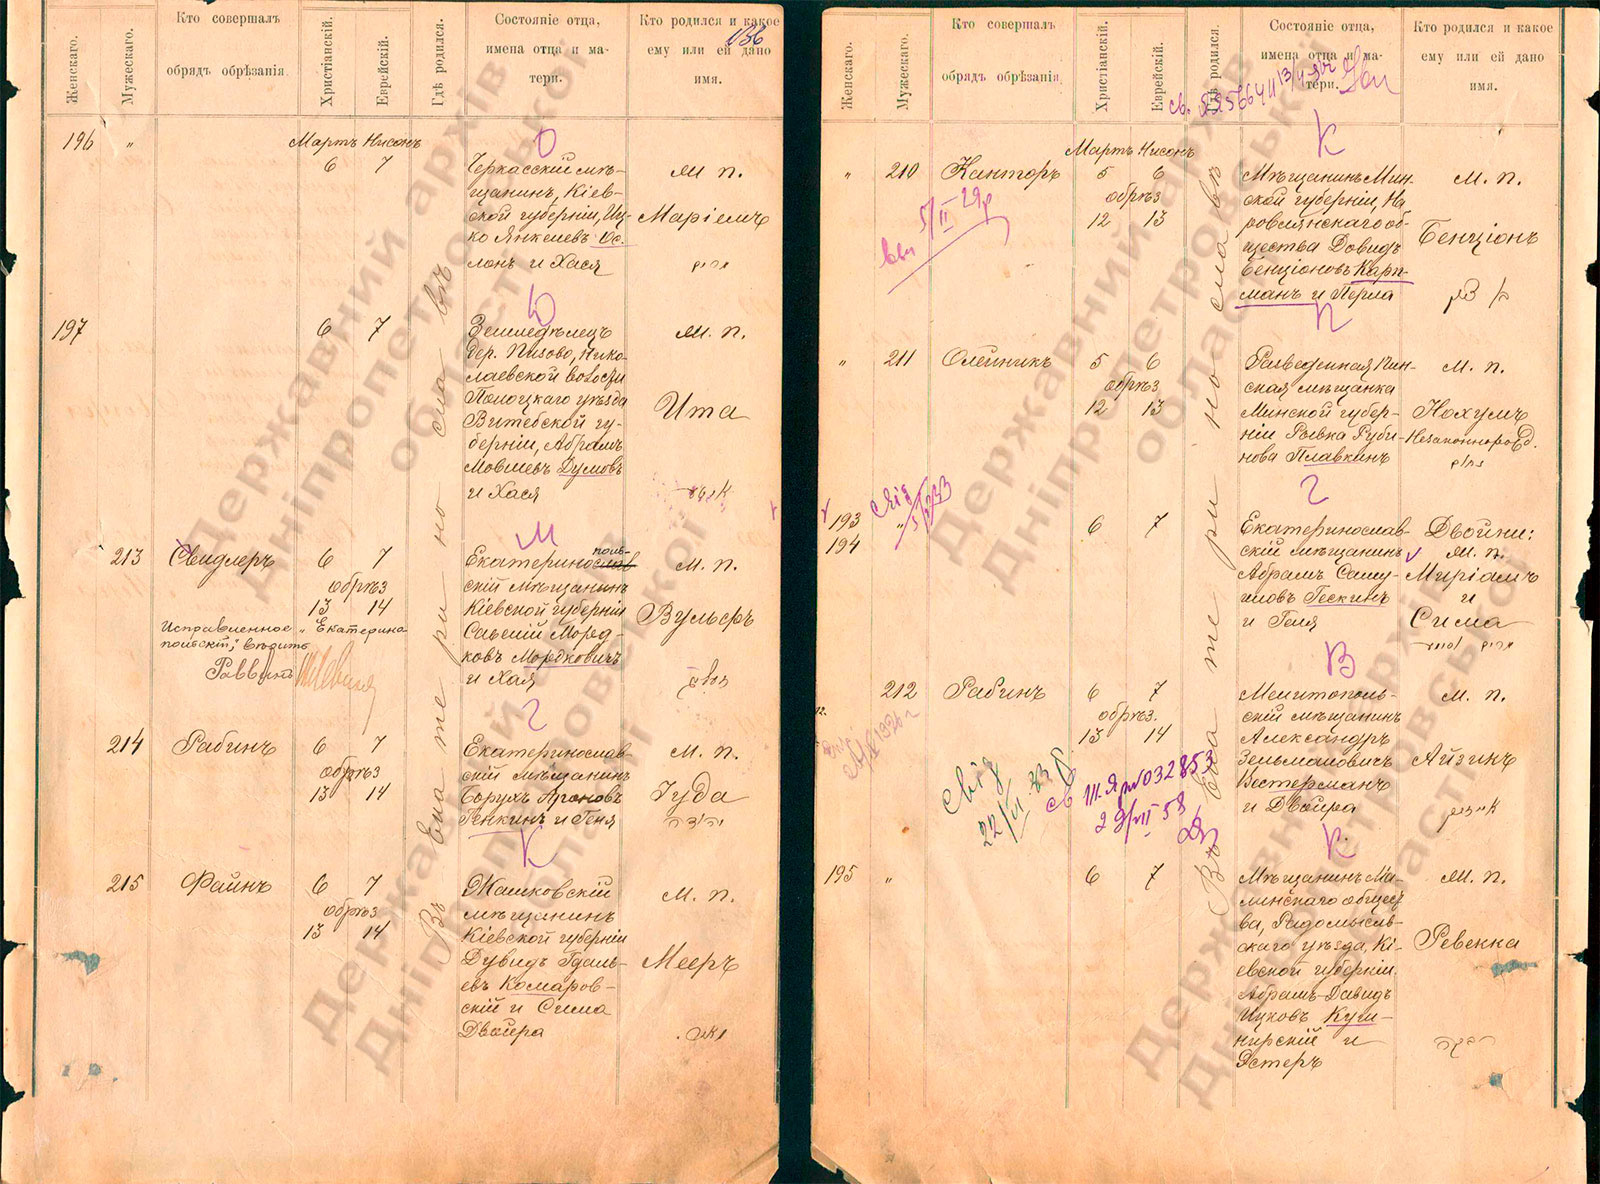 Женскаго.
Мужескаго.
Кто совершалъ
обрядъ обрѣзанія.
Христіанскій.
Еврейскій.
Гдѣ родился.
Состояніе отца,
имена отца и ма-
тери.
Кто родился и какое
ему или ей дано
имя.
136
196 „
Мартъ Нисонъ
6 7
Черкасскій мѣ-
щанинъ, Кіев-
ской губерніи, Иц-
ко Янкелевъ Ос.
лонъ и Хася
М. п.
Маріемъ
О
197
6 7
Ю
Земледѣлецъ
дер. Пизово, Нико-
лаевской волости
Полоцкаго уѣзда
Витебской гу-
берніи, Абрамъ
Мовшевъ Думовъ
и Хася
М. п.
Ита
213
Свидлеръ
6 7
обрѣз
13 14
М
Екатеринослав
поль-
скій мѣщанинъ
Кіевской губерніи
Морд-
ковъ Мордковичъ
и Хая
М. п.
Вульфъ
Исправленное „Екатерино
польскій“, вѣрить
Раввинъ
214
Рабинъ
6 7
обрѣз
13 14
Г
Екатеринослав-
скій мѣщанинъ
Борухъ Ароновъ
Генкинъ и Геня
М. п.
Іуда
יהודה
215
Файнъ
6 7
обрѣз
13 14
К
Жашковскій
мѣщанинъ
Кіевской губерніи
Дувидъ Гдаль-
евъ Комаров-
скій и Сима
Двойра
М. п.
Мееръ
Въ Екатеринославѣ
Женскаго.
Мужескаго.
Кто совершалъ
обрядъ обрѣзанія.
Христіанскій.
Еврейскій.
Гдѣ родился.
Состояніе отца,
имена отца и ма-
тери.
Кто родился и какое
ему или ей дано
имя.
„ 210
Канторъ
Мартъ Нисонъ
5 6
обрѣз
12 13
5/II 29р
К
Мѣщанинъ Мин-
ской губерніи, На
ровлянскаго об-
щества Довидъ
Бенціоновъ Карп-
манъ и Перла
М. п.
Бенціонъ
„ 211
Олейникъ
5 6
обрѣз
12 13
П
Разведенная Пин-
ская мѣщанка
Минской губер-
ніи Рывка Руби-
нова Плавкинъ
М. п.
Нохумъ
Незаконнорожд.
193
194
6 7
Г
Екатеринослав-
скій мѣщанинъ
Абрамъ Саму-
иловъ Гескинъ
и Геля
Двойни:
М. п.
Миріамъ
и
Сима
212
Рабинъ
6 7
обрѣз.
13 14
В
Мелитополь-
скій мѣщанинъ
Александръ
Зельмановичъ
Вестерманъ
и Двойра
М. п.
Айзикъ
22/VI 33
св III.Я №032853
29/VII 58
195 „
6 7
К
Мѣщанинъ Ма-
линскаго общест
ва, Радомысль-
скаго уѣзда, Кі-
евской губерніи
Абрамъ-Давидъ
Ицковъ Куш-
нирскій и
Эстеръ
М. п.
Ревекка
רבקה
Въ Екатеринославѣ
Державний архів
Дніпропетровської
області